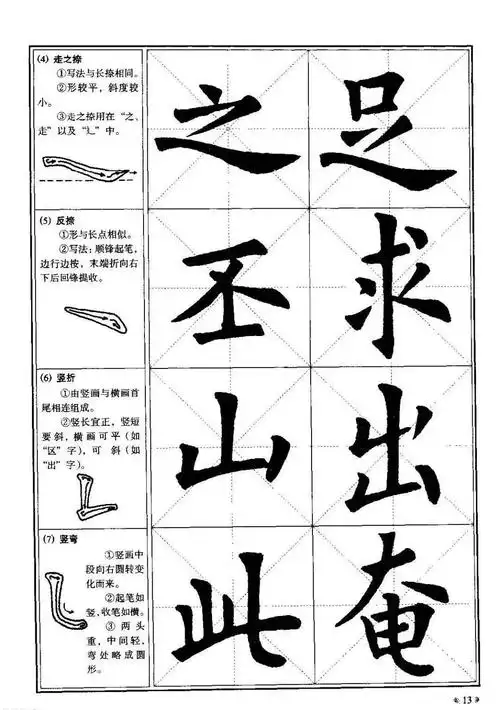 (4) 走之捺
①写法与长捺相同。
②形较平，斜度较
小。
③走之捺用在“之、
走”以及“辶”中。
之足
(5) 反捺
①形与长点相似。
②写法：顺锋起笔，
边行边按，末端折向右
下后回锋提收。
丕求
(6) 竖折
①由竖画与横画首
尾相连组成。
②竖长宜正，竖短
要斜，横画可平(如
“区”字)，可斜(如
“出”字)。
山出
(7) 竖弯
①竖画中
段向右圆转变
化而来。
②起笔如
竖，收笔如横。
③两头
重，中间轻，
弯处略成圆
形。
此奄
13